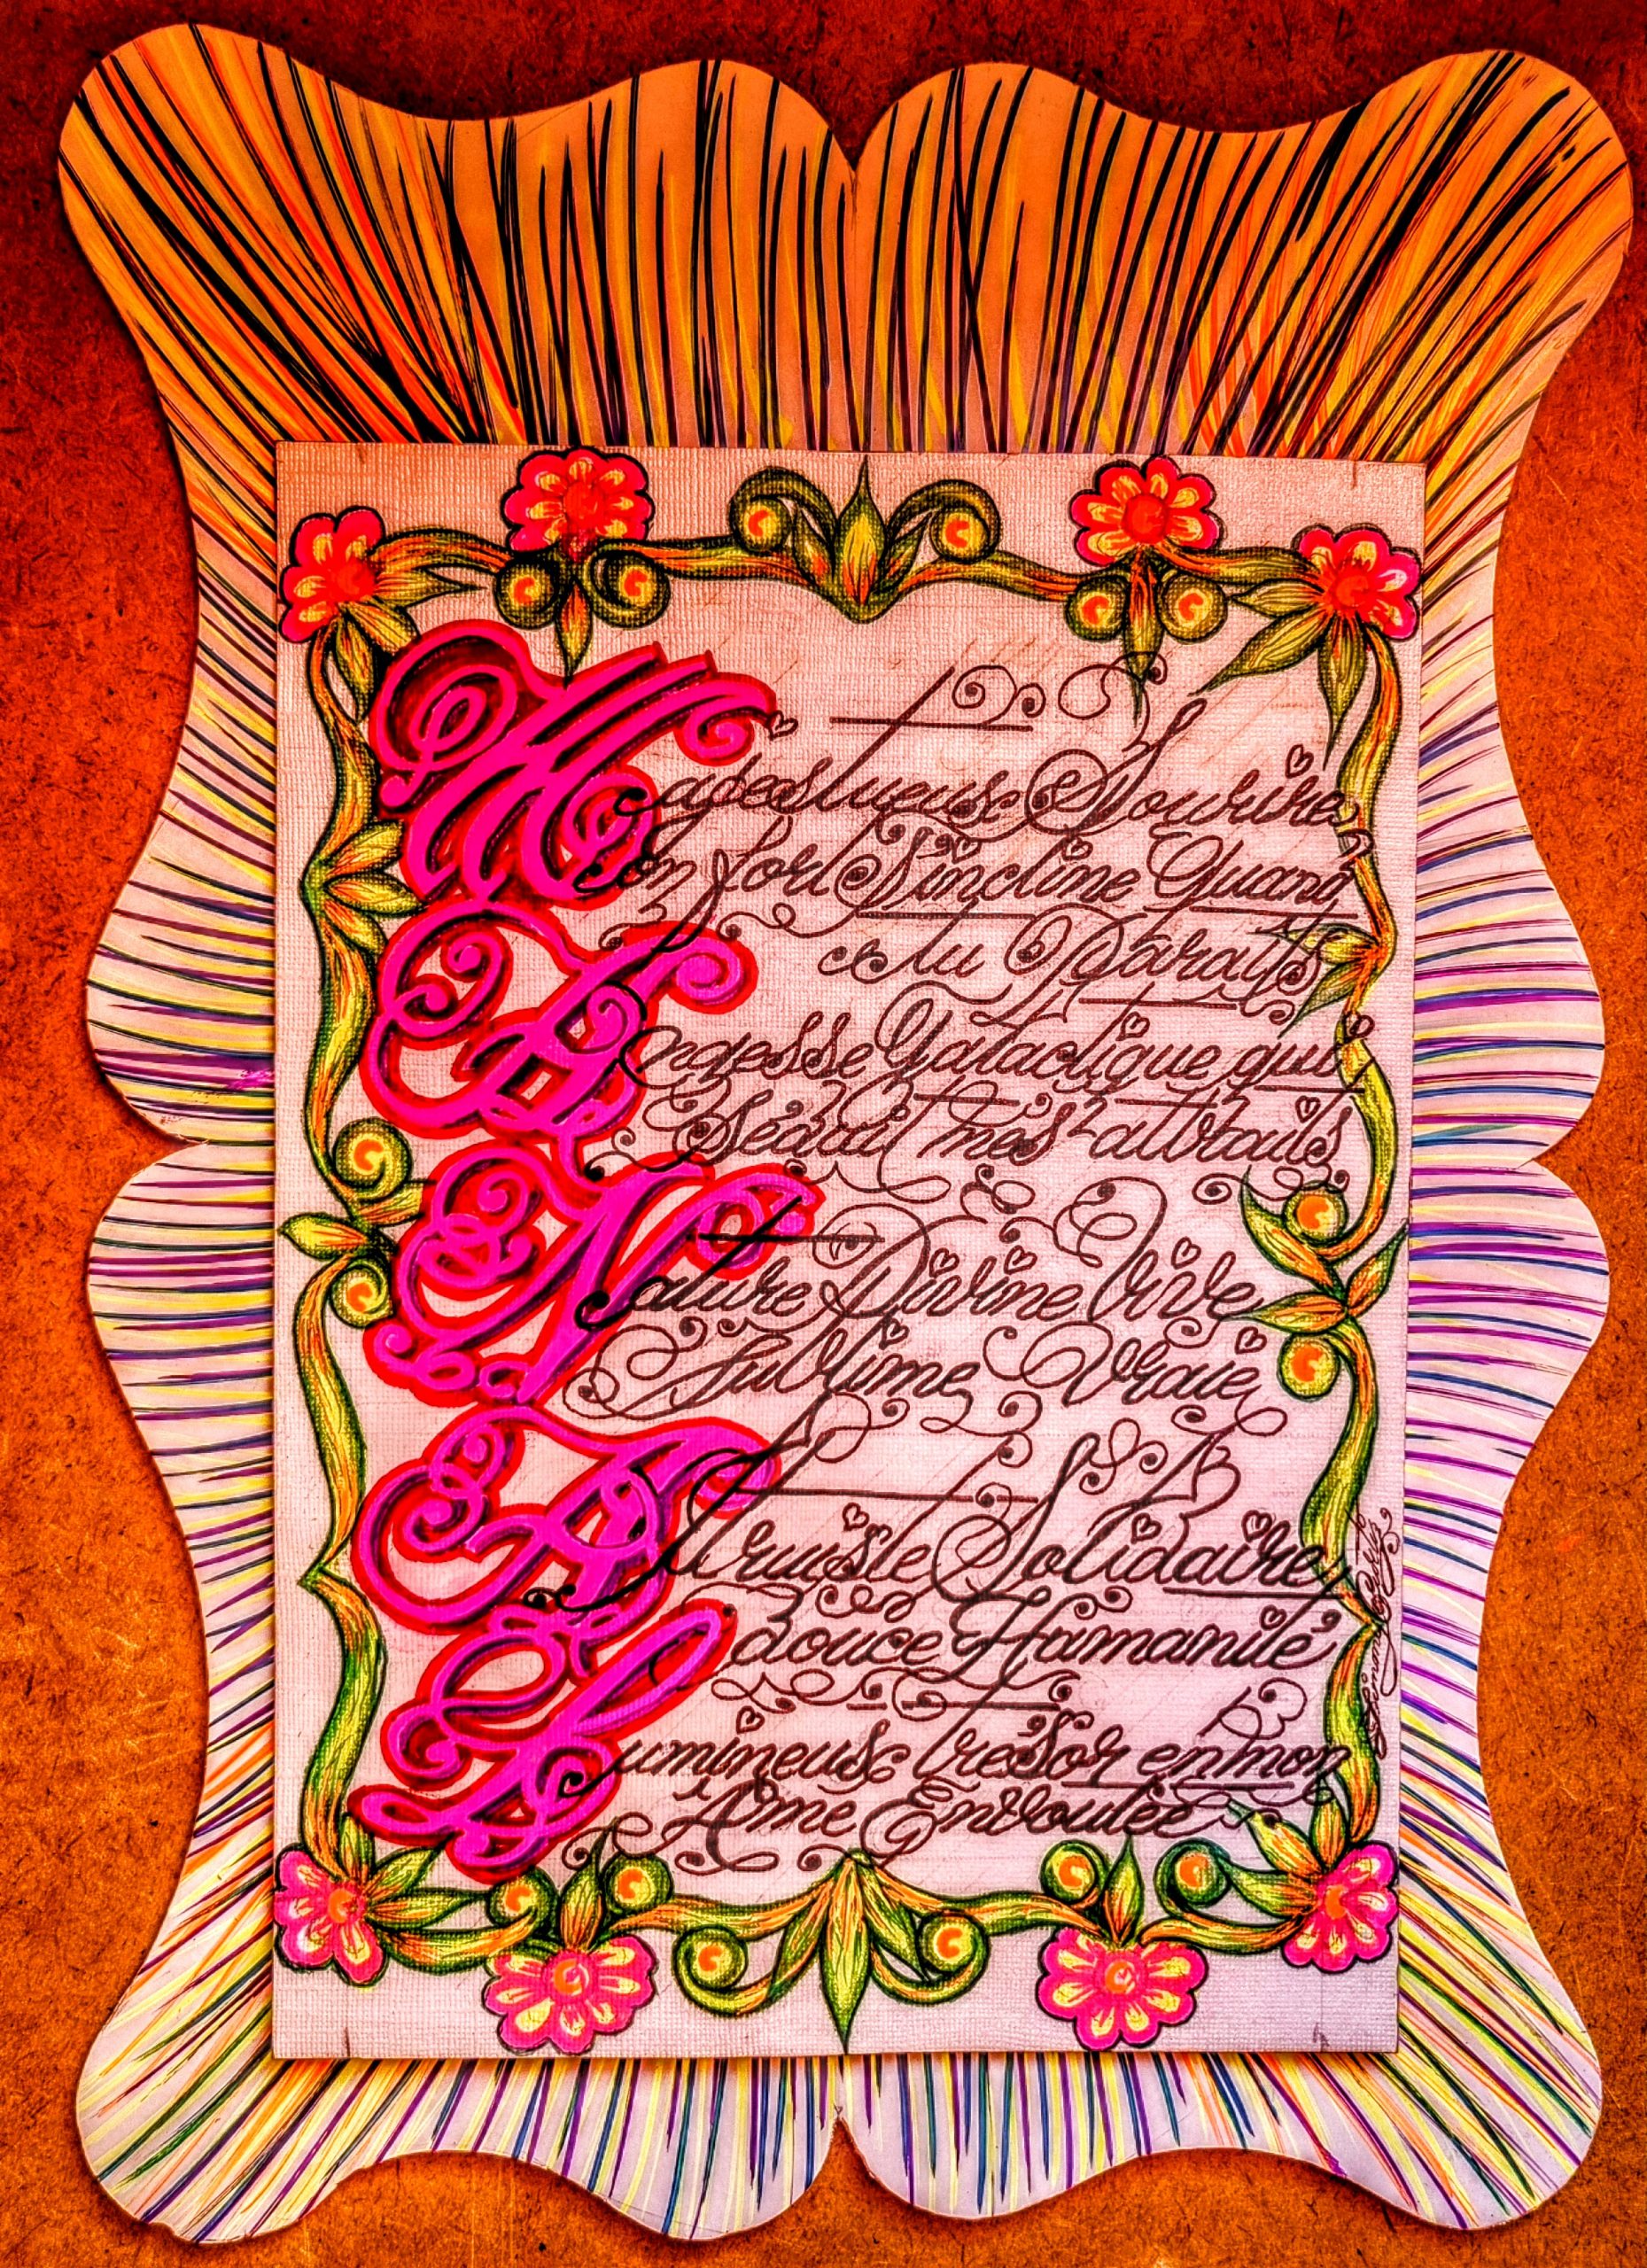 Majestueuse Sourire,
fort S'incline Quand
tu Paraits
Angesse Galactique qui
Séduit mes attraits
Nature Divine Vive
Sublime Vraie
Altruiste Solidaire,
douce Humanité
Lumineuse trésor en mon
Âme Envoutée